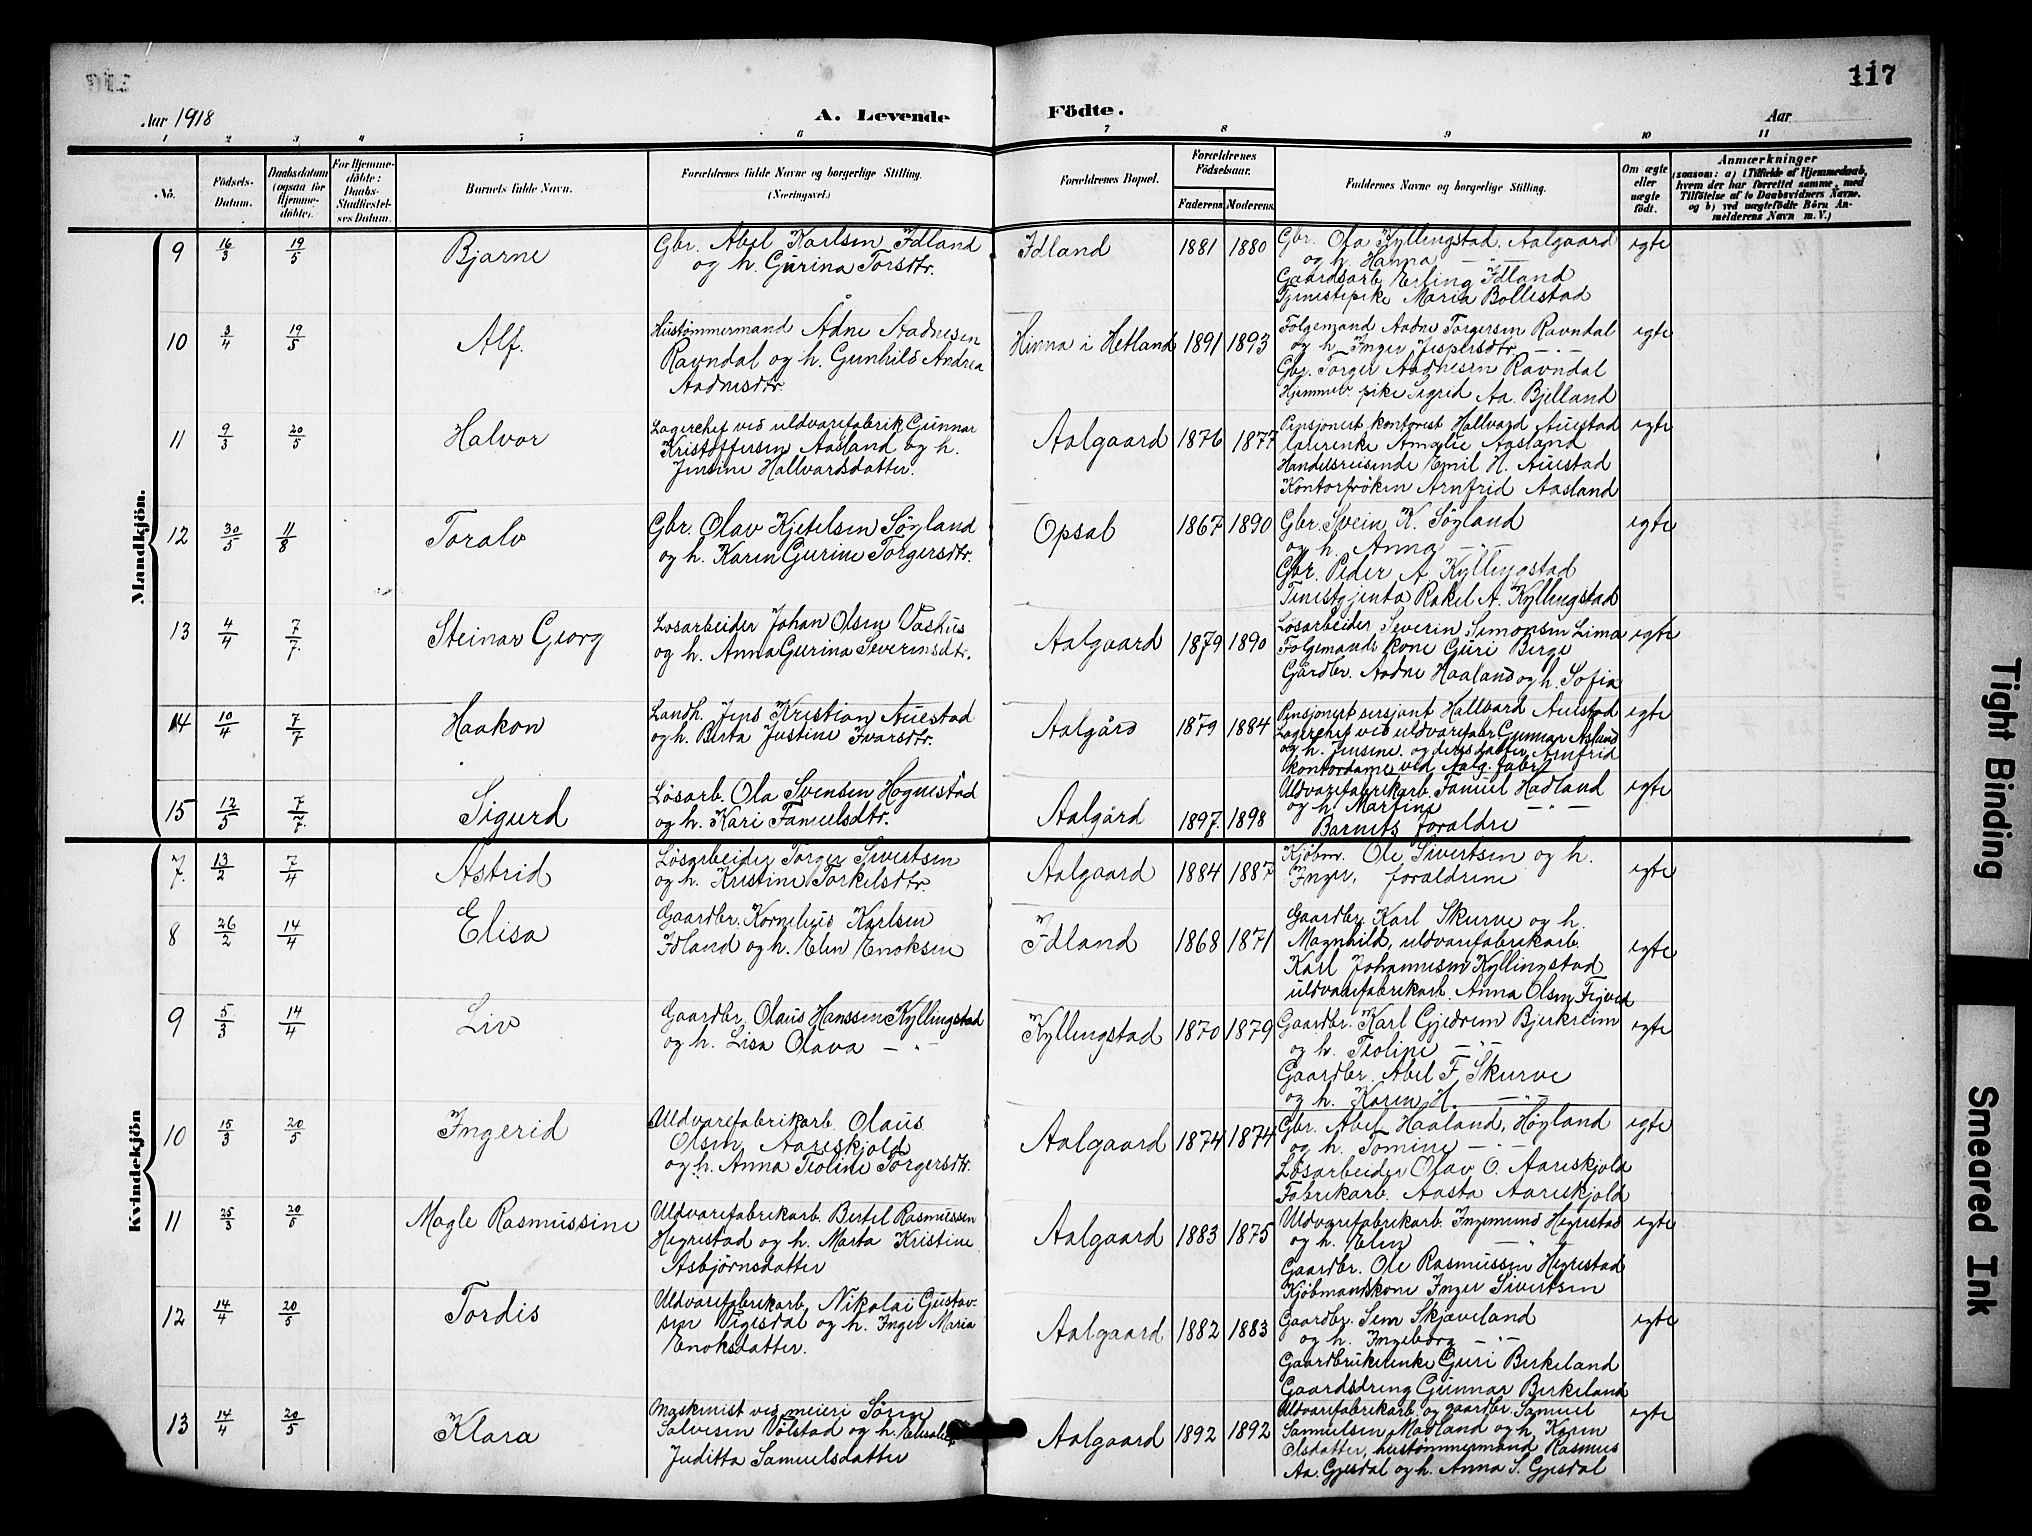 117
Aar 1918
A. Levende Födte.
Aar
1 2 3 4 5 6 7 8 9 10 11
No.
Födsels-
Datum.
Daabsdatum
(ogsaa for
Hjemme-
döbte).
For Hjemme-
döbte:
Daabs-
Stadfæstel-
ses Datum.
Barnets fulde Navn.
Forældrenes fulde Navne og borgerlige Stilling.
(Næringsvei.)
Forældrenes Bopæl.
Forældrenes
Födselsaar.
Faderens. Moderens.
Faddernes Navne og borgerlige Stilling.
Om ægte
eller
uægte
födt.
Anmærkninger
(saasom: a) i Tilfælde af Hjemmedaab,
hvem der har forrettet samme, med
Tilföielse af to Daabsvidners Navne,
og b) ved uægtefödte Börn An-
melderens Navn m. V.)
Mandkjön.
9 16/3 19/5 Bjarne
Gbr. Abel Karlsen Idland
og h. Gurina Torsdtr.
Idland 1881 1880
Gbr. Ola Kyllingstad. Aalgaard
og h. Hanna — " —
Gaardsarb. Erling Idland
Tjenestepike Maria Bollestad
egte
10 3/4 19/5 Alf.
Hustømmermand Ådne Aadnesen
Ravndal og h. Gunhild Andrea
Aadnesdtr.
Hinna i Hetland 1891 1893
Folgemand Aadne Torgersen Ravndal
og h. Inger Jespersdtr — " —
Gbr. Torger Aadnesen Ravndal
Hjemmev. pike Sigrid Aa. Bjelland
egte
11 9/3 20/5 Halvor
Lagerchef ved uldvarefabrik Gunnar
Kristoffersen Aasland og h.
Jensine Hallvardsdatter.
Aalgaard 1876 1877
Pensjonert kontorist Hallvard Auestad
Lærerenke Amalie Aasland
Handelsreisende Emil H. Auestad
Kontorfrøken Arnfrid Aasland
egte
12 30/5 11/8 Toralv
Gbr. Olav Kjetelsen Søyland
og h. Karen Gurine Torgersdtr.
Opsal 1867 1890
Gbr. Svein K. Søyland
og h. Anna — " —
Gbr. Peder A. Kyllingstad
Tenestgjenta Rakel A. Kyllingstad
egte
13 4/4 7/7 Steinar Georg
Løsarbeider Johan Olsen Vashus
og h. Anna Gurina Severinsdtr.
Aalgaard 1879 1890
Løsarbeider Severin Simonsen Lima
Folgemands kone Guri Berge
Gårdbr. Aadne Haaland og h. Sofia
egte
14 10/4 7/7 Haakon
Landh. Jens Kristian Auestad
og h. Berta Justine Ivarsdtr.
Aalgård 1879 1884
Pensjonert sersjant Hallvard Auestad
Lagerchef ved uldvarefabr. Gunnar Asland
og h. Jensine. og deres datter Arnfrid
kontordame ved Aalg. fabr.
egte
15 12/5 7/7 Sigurd
Løsarb. Ola Svensen Hognestad
og h. Kari Samuelsdtr.
Aalgård 1897 1898
Uldvarefabrikarb. Samuel Hadland
og h. Martine — " —
Barnets foraldre
egte
Kvindekjön
7. 13/2 7/4 Astrid
Løsarbeider Torger Sivertsen
og h. Kristine Torkelsdtr.
Aalgaard 1884 1887
Kjøbm. Ole Sivertsen og h.
Inger, foraldrene
egte
8 26/2 14/4 Elisa
Gaardbr. Kornelius Karlsen
Idland og h. Elen Enoksen
Idland 1868 1871
Gaardbr. Karl Skurve og h.
Magnhild, uldvarefabrikarb.
Karl Johannesen Kyllingstad
uldvarefabrikarb. Anna Olsen
egte
9 5/3 14/4 Liv
Gaardbr. Olaus Hanssen Kyllingstad
og h. Lisa Olava — " —
Kyllingstad 1870 1879
Gaardbr. Karl Gjedrem Bjerkreim
og h. Teoline — " —
Gaardbr. Abel F. Skurve
og h. Karen H. — " —
egte
10 15/3 20/5 Ingerid
Uldvarefabrikarb. Olaus
Olsen Aareskjold
og h. Anna Teoline Torgersdtr.
Aalgaard 1874 1874
Gbr. Abel Haaland, Høyland
og h. Tomine — " —
Løsarbeider Olav O. Aareskjold
Fabrikarb. Aasta Aareskjold
egte
11 25/3 20/5 Magle Rasmussine
Uldvarefabrikarb. Bertel Rasmussen
Hegrestad og h. Marta Kristine
Asbjørnsdatter
Aalgaard 1883 1875
Uldvarefabrikarb. Ingemund Hegrestad
og h. Elen — " —
Gaardbr. Ole Rasmussen Hegrestad
Kjøbmandskone Inger Sivertsen
egte
12 14/4 20/5 Tordis
Uldvarefabrikarb. Nikolai Gustav-
sen Vigesdal og h. Inger Maria
Enoksdatter.
Aalgaard 1882 1883
Gaardbr. Sem Skjæveland
og h. Ingeborg — " —
Gaardbrukerenke Guri Birkeland
Gaardsdreng Gunnar Birkeland
egte
13 14/4 20/5 Klara
Maskinist ved meieri Søren
Salvesen Vølstad og h. Elisabet
Juditta Samuelsdatter
Aalgaard 1892 1892
Uldvarefabrikarb. og gaardbr. Samuel
Samuelsen Madland og h. Karen
Olsdatter, hustømmermand Rasmus
Aa. Gjesdal og h. Anna S. Gjesdal
egte
Tight Binding
Smeared Ink